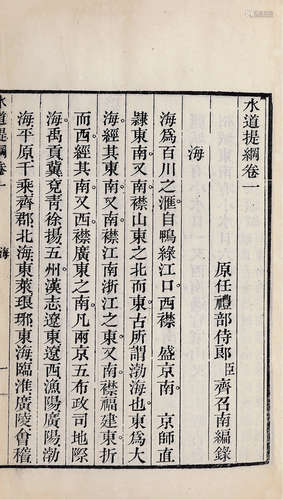 水道提綱卷一
原任禮部侍郞臣齊召南編錄
海
海爲百川之滙自鴨綠江口西襟 盛京南 京師直
隸東南又南襟山東之北而東古所謂渤海也東爲大
海經其東南又南襟江南浙江之東又南襟福建東折
而西經其南又西襟廣東之南凡兩京五布政司地際
海禹貢冀兗靑徐揚五州漢志遼東遼西漁陽廣陽渤
海平原千乘齊郡北海東萊琅邪東海臨淮廣陵會稽
水道提綱卷一 海